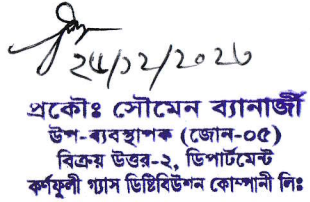 ২৪/১২/২০২৩
প্রকৌঃ সৌমেন ব্যানার্জী
উপ-ব্যবস্থাপক (জোন-০৫)
বিক্রয় উত্তর-২, ডিপার্টমেন্ট
কর্ণফুলী গ্যাস ডিষ্টিবিউশন কোম্পানী লিঃ